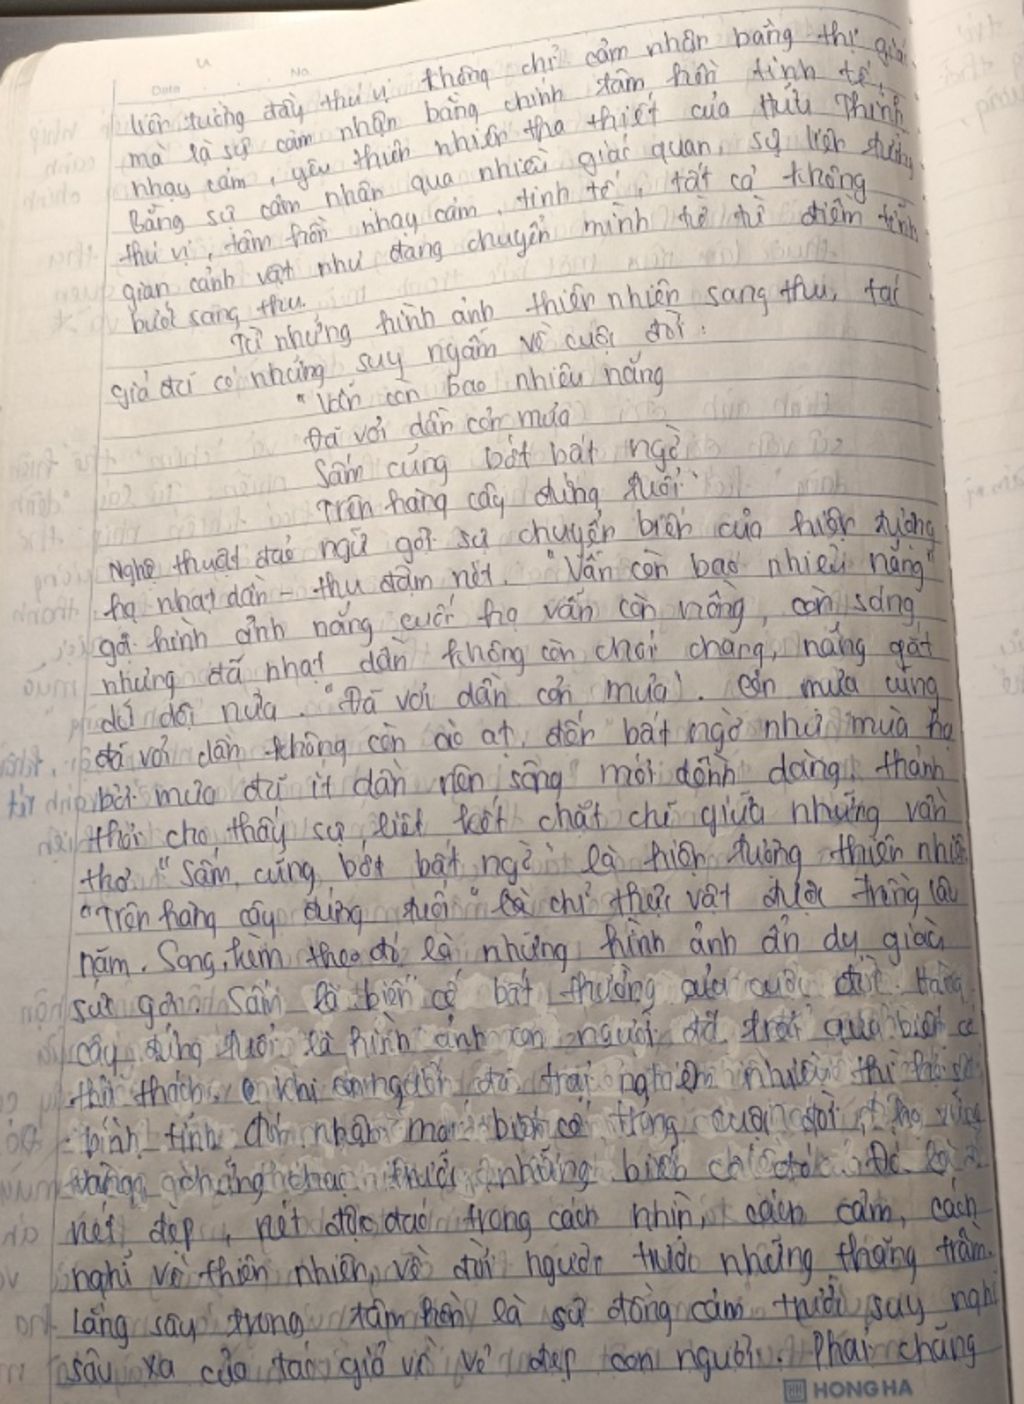 Date No
liên tưởng đầy thú vị không chỉ cảm nhận bằng thị giác
mà là sự cảm nhận bằng chính tâm hồn tinh tế,
nhạy cảm, yêu thiên nhiên tha thiết của Hữu Thỉnh
Bằng sự cảm nhận qua nhiều giác quan, sự liên tưởng
thú vị, tâm hồn nhạy cảm, tinh tế, tất cả không
gian cảnh vật như đang chuyển mình từ từ điềm tĩnh
bước sang thu.
Từ những hình ảnh thiên nhiên sang thu, tác
giả đã có những suy ngẫm về cuộc đời:
"Vẫn còn bao nhiêu nắng
Đã vơi dần cơn mưa
Sấm cũng bớt bất ngờ
Trên hàng cây đứng tuổi"
Nghệ thuật đảo ngữ gợi sự chuyển biến của hiện tượng
hạ nhạt dần - thu đậm nét. "Vẫn còn bao nhiêu nắng"
gợi hình ảnh nắng cuối hạ vẫn còn nồng, còn sáng
nhưng đã nhạt dần không còn chói chang, nắng gắt
dữ dội nữa. "Đã vơi dần cơn mưa". Cơn mưa cũng
đã vơi dần không còn ào ạt, đến bất ngờ như mưa hạ
bởi mưa đã ít dần nên sông mới dềnh dàng, thảnh
thơi cho thấy sự kết chặt chẽ giữa những vần
thơ "Sấm cũng bớt bất ngờ" là hiện tượng thiên nhiên
"Trên hàng cây đứng tuổi" là chỉ thực vật được trồng lâu
năm. Song, kèm theo đó là những hình ảnh ẩn dụ giàu
sức gợi. Sấm là biến cố bất thường của cuộc đời. Hàng
cây đứng tuổi là hình ảnh con người đã trải qua biến cố
thử thách. khi con người đã trải nghiệm nhiều thì họ sẽ
bình tĩnh đón nhận mọi biến cố trong cuộc đời, vững
vàng, chẳng trước những biến cố đó. Đó là
nét đẹp, nét độc đáo trong cách nhìn, cách cảm, cách
nghĩ về thiên nhiên, về đời người trước những thăng trầm.
Lắng sâu trong tâm hồn là sự đồng cảm trước suy nghĩ
sâu xa của tác giả về vẻ đẹp con người. Phải chăng
HONG HA